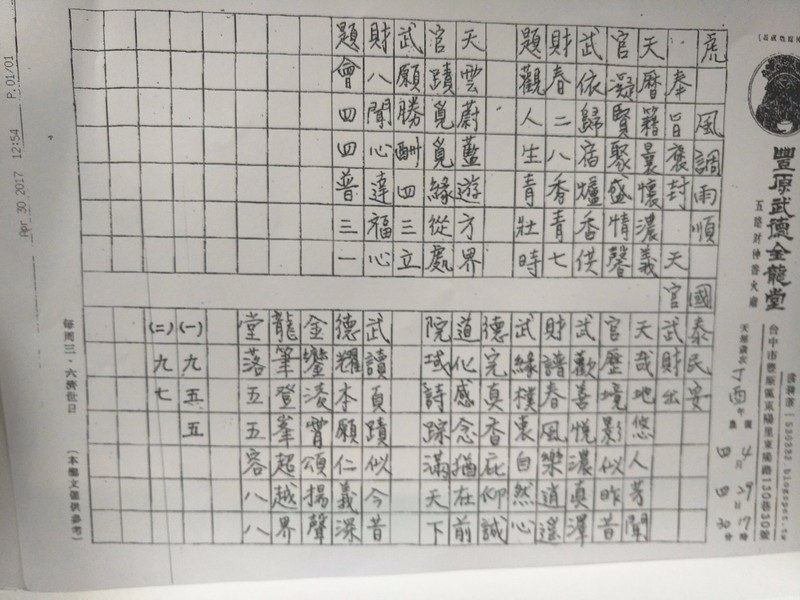 豐原武德金龍堂
五路財神香火廟
台中市豐原區東陽里東陽路150巷50號
530333 blogspot.tw
天運歲次丁酉年
四月
4月29日17時30分
虎
風調雨順
國泰民安
奉旨褒封天官武財出
天曆籍曩懷濃義
官凝賢聚盛情馨
武依歸宿爐香供
財春二八香青七
題觀人生青壯時
天雲蔚藍遊方界
官蹟覓覓緣從處
武願勝酬四三立
財八聞心達福心
題會四四普三一
天哉地悠人芳聞
官歷境影似昨昔
武歡善悅濃真澤
財譜春風樂逍遙
武緣樸裏自然心
德完真香庇仰誠
道化感念猶在前
院域詩踪滿天下
武讀頁蹟似今昔
德耀本願仁義深
金鑾淩霄頌揚聲
龍筆登峯超越界
堂落五五容八八
(一)九五五
(二)九七
每周三、六濟世日
(本鸞文僅供參考)
Apr 30 2017 12:54 P.01/01